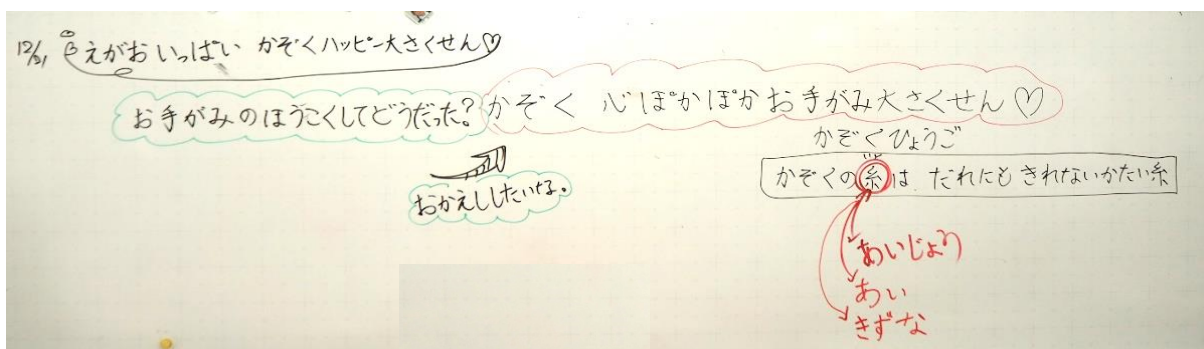 12/21 えがおいっぱい かぞくハッピー大さくせん♡
お手がみのほうこくしてどうだった?
かぞく 心ぽかぽかお手がみ大さくせん♡
おかえししたいな。
かぞくひょうご
かぞくの糸は だれにも きれないかたい糸
あいじょう
あい
きずな